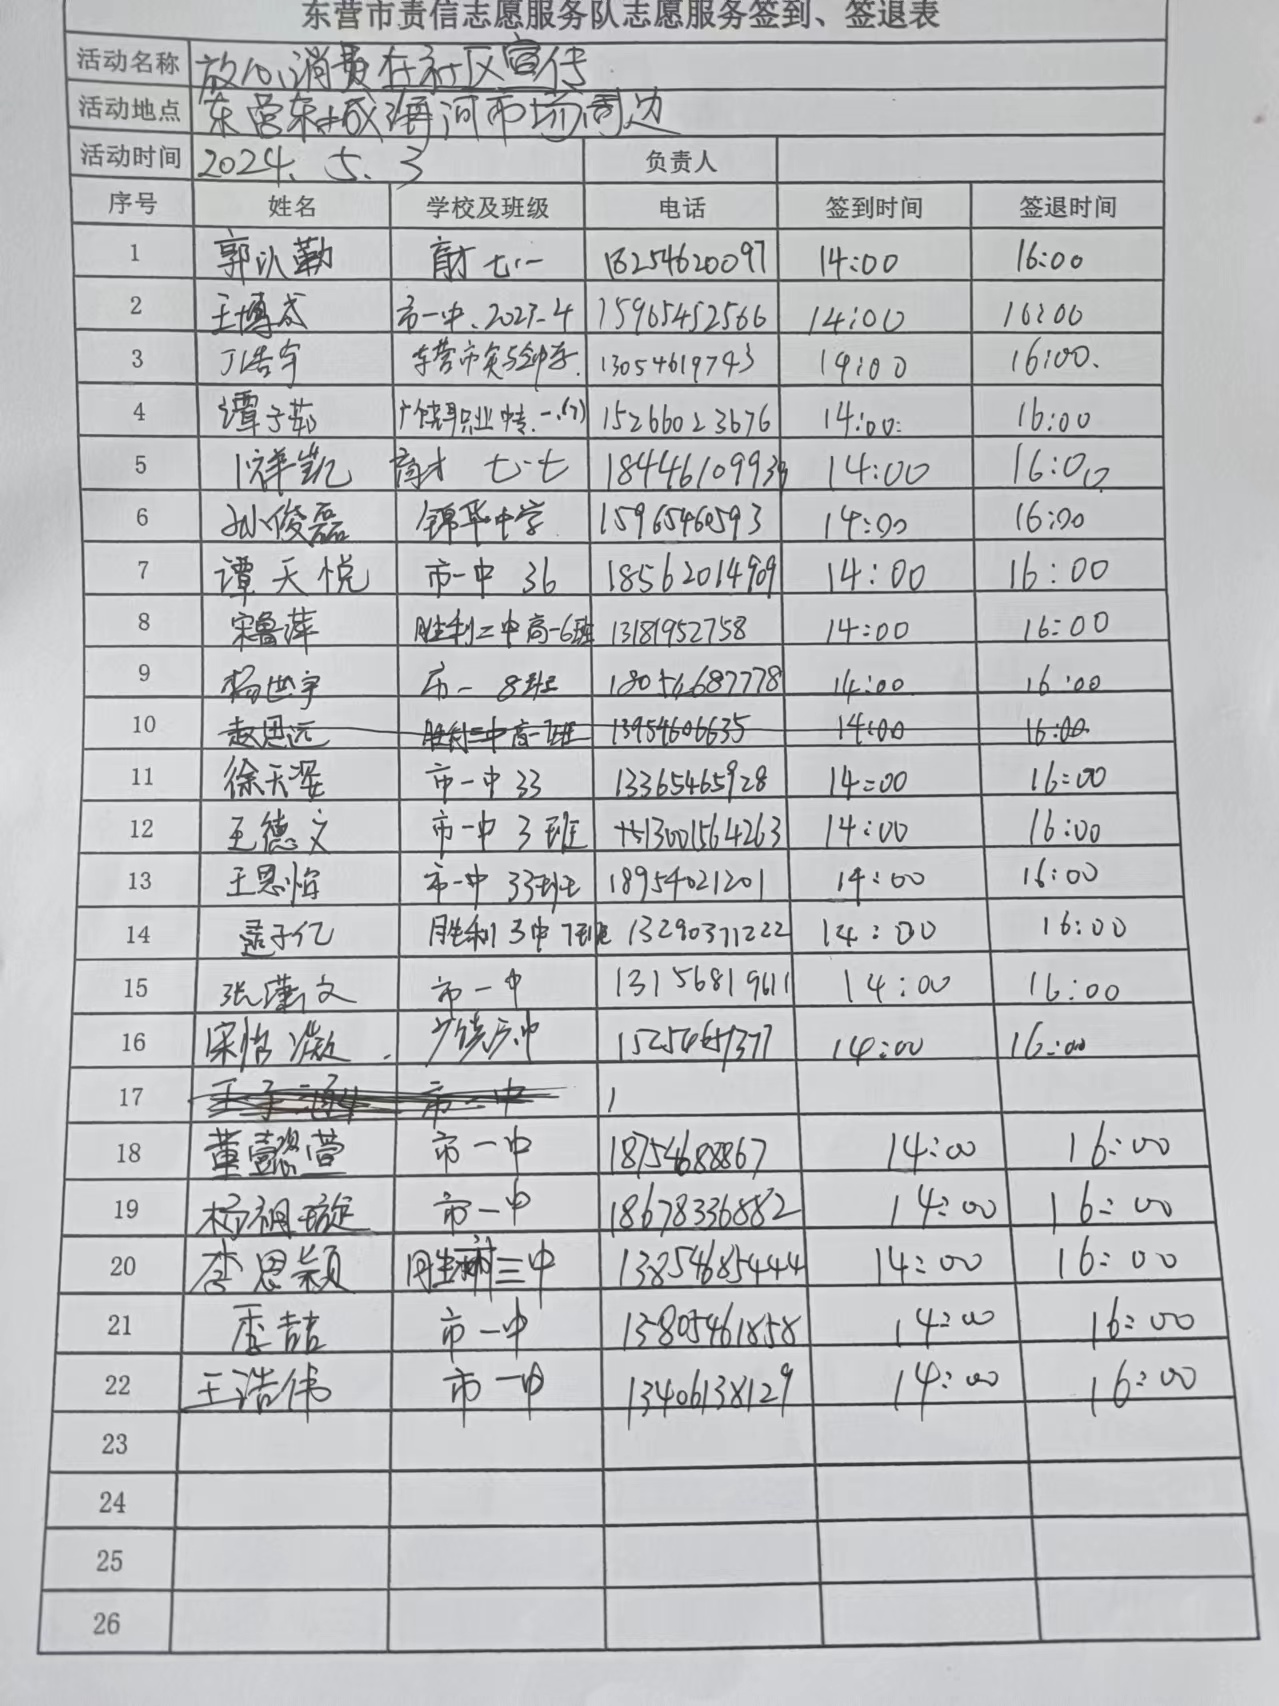 东营市责信志愿服务队志愿服务签到、签退表
活动名称 放心消费在社区宣传
活动地点 东营东城海河市场周边
活动时间 2024.5.3 负责人
序号 姓名 学校及班级 电话 签到时间 签退时间
1 郭沁勤 育才七·一 18254620097 14:00 16:00
2 王博 市一中.2023-4 15965452566 14:00 16:00
3 浩宇 东营市实验中学. 13054619743 14:00 16:00.
4 谭子茹 广饶职业中专.一.(7) 15266023676 14:00 16:00
5 祥凯 育才 七·七 18446109939 14:00 16:00
6 孙俊磊 锦华中学 15965460593 14:00 16:00
7 谭天悦 市一中 36 18562014909 14:00 16:00
8 宋鲁萍 胜利二中高一6班 13181952758 14:00 16:00
9 杨世宇 8班 18054687778 14:00 16:00
10 赵思远 胜利二中高一7班 13954606635 14:00 16:00
11 徐天姿 市一中 33 13365465928 14:00 16:00
12 王德文 市一中 3班 13001564263 14:00 16:00
13 王思恒 市一中 33班 18954021201 14:00 16:00
14 孟子亿 胜利3中7班 13290371222 14:00 16:00
15 张潇文 市一中 13156819611 14:00 16:00
16 宋怡凝 15254657377 14:00 16:00
17 王子涵 市一中
18 董懿萱 市一中 18754688867 14:00 16:00
19 杨祖璇 市一中 18678336882 14:00 16:00
20 李思颖 胜利三中 13854685444 14:00 16:00
21 李喆 市一中 13805461858 14:00 16:00
22 王浩伟 市一中 13406138129 14:00 16:00
23
24
25
26